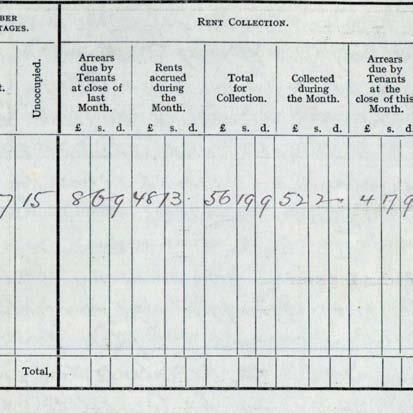 BER
TAGES.
RENT COLLECTION.
t.
Unoccupied.
Arrears
due by
Tenants
at close of
last
Month.
Rents
accrued
during
the
Month.
Total
for
Collection.
Collected
during
the Month.
Arrears
due by
Tenants
at the
close of this
Month.
£ s. d. £ s. d. £ s. d. £ s. d. £ s. d.
7 15 8 6 9 48 13 - 56 19 9 52 2 - 4 17 9
Total,